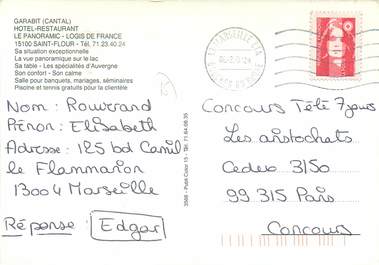 GARABIT (CANTAL)
HOTEL-RESTAURANT
LE PANORAMIC - LOGIS DE FRANCE
15100 SAINT-FLOUR - Tél. 71.23.40.24
Sa situation exceptionnelle
La vue panoramique sur le lac
Sa table - Les spécialités d'Auvergne
Son confort - Son calme
Salle pour banquets, mariages, séminaires
Piscine et tennis gratuits pour la clientèle
Nom : Rouvrand
Prénom : Elisabeth
Adresse : 125 bd Camil
le Flammarion
13004 Marseille
Réponse : Edgar
3568 - Publi Color 15 - Tél. 71.64.08.35
Concours Télé 7 jours
Les aristochats
Cedex 3150
99 315 Paris
Concours